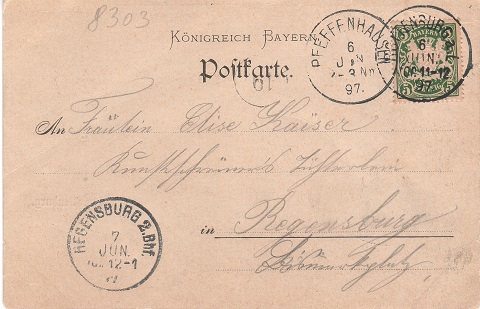 8303
KÖNIGREICH BAYERN
Postkarte.
PFEFFENHAUSEN
6
JUN
97.
REGENSBURG
6
JUN.
11-12
97
BAYERN
5
5
10
An Fräulein Elise Kaiser
in Regensburg
REGENSBURG 2.Bhf.
7
JUN.
12-1